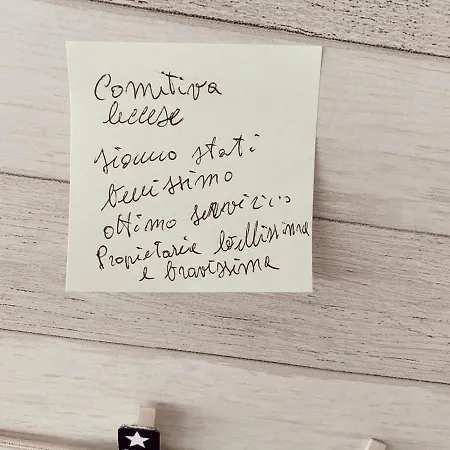 Comitiva
leccese
siamo stati
benissimo
ottimo servizio
Proprietarie bellissime
e bravissime